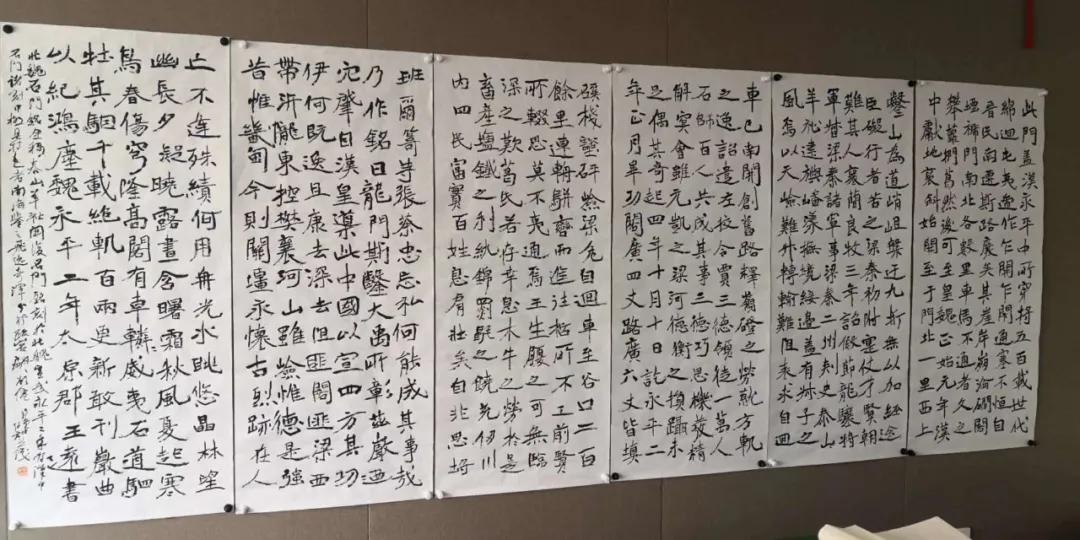 此門蓋漢永平中所穿將五百載世代
綿迴屯夷遞作乍開乍閉通塞不恒自
晉氏南遷斯路廢矣其崖岸崩淪磵閣
堙褫門南北各數里車馬不通者久之
攀蘿捫葛然後可至皇魏正始元年漢
中獻地褒斜始開至于門北一里西上
鑿山為道峭岨槃迂九折無以加經途
巨礙行者苦之梁秦初附寔仗才賢朝
難其人褒簡良牧三年詔假節龍驤將
軍督梁秦諸軍事梁秦二州刺史泰山
羊祉建旟嶓漾撫境綏邊蓋有叔子之
風焉以天嶮難升轉輸難阻表求自迴
車已南開創舊路釋負擔之勞就方軌
之逸詔遣左校令賈三德領徒一萬人
石師百人共成其事三德巧思機發精
解冥會雖元凱之梁河德衡之損躡未
足偶其奇起四年十月十日訖永平二
年正月畢功閣廣四丈路廣六丈皆填
磎棧壑砰嶮梁危自迴車至谷口二百
餘里連輈駢轡而進往哲所不工前賢
所輟思莫不夷通焉王生履之可無臨
深之歎葛氏若存幸息木牛之勞於是
畜產鹽鐵之利紈錦罽毼之饒充牣川
內四民富實百姓息肩壯矣自非思埒
班爾籌等張蔡忠忘私何能成其事哉
乃作銘曰龍門斯鑿大禹所彰茲巖迺
穴肇自漢皇導此中國以宣四方其功
伊何既逸且康去深去阻匪閣匪梁西
帶汧隴東控樊襄河山雖嶮惟德是強
昔惟畿甸今則關壃永懷古烈跡在人
亡不逢殊績何用再光水眺悠晶林望
幽長夕凝曉露晝含曙霜秋風夏起寒
鳥春傷穹隆高閣有車轔威夷石道駟
牡其駰千載絕軌百兩更新敢刊巖曲
以紀鴻塵魏永平二年太原郡王遠書
北魏石門銘